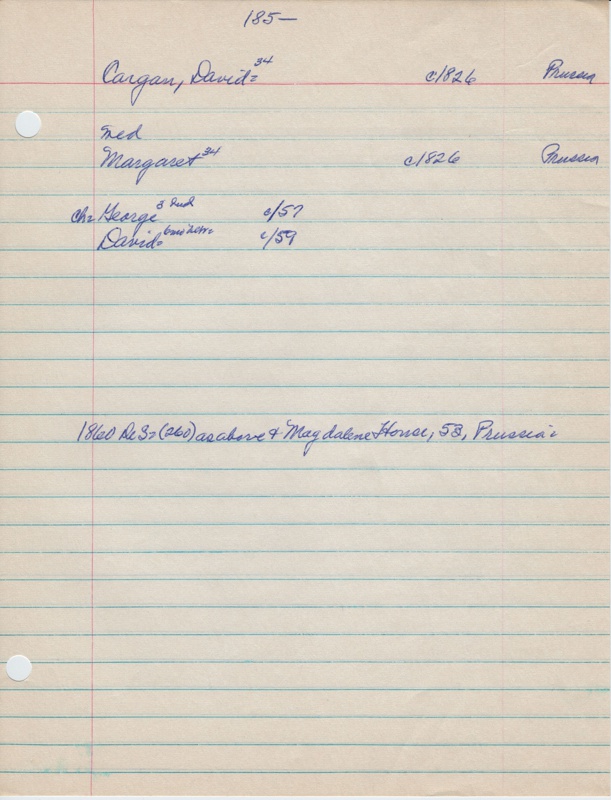 185—
Cargan, David= 34 c1826 Prussia
med
Margaret 34 c1826 Prussia
ch= George 3 Ind c/57
David= c/59
1860 DeSo (260) as above & Magdalene House, 53, Prussia=